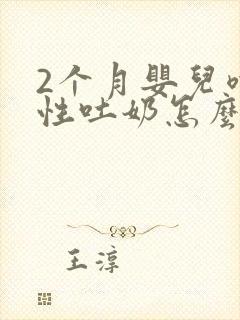 2个月嬰兒
性吐奶怎麼
王淳